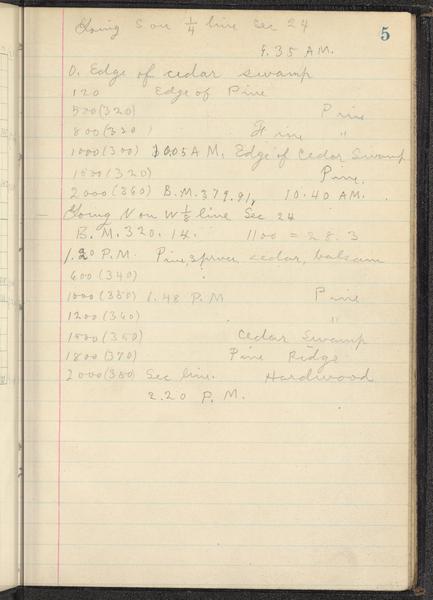 Going S on 1/4 line Sec 24
5
9.35 A.M.
0. Edge of cedar swamp
120 Edge of Pine
500 (320) Pine
800 (320) Pine "
1000 (300) 10.05 A M. Edge of Cedar Swamp
1500 (320) Pine.
2000 (360) B.M. 379.91, 10.40 AM.
Going N on W 1/8 line Sec 24
B.M. 320.14. 1100 = 28.3
1.20 P.M. Pine, spruce, cedar, balsam
600 (340)
1000 (350) 1.48 P.M Pine
1200 (360) "
1500 (350) Cedar Swamp
1800 (370) Pine Ridge
2000 (380) Sec line. Hardwood
2.20 P.M.